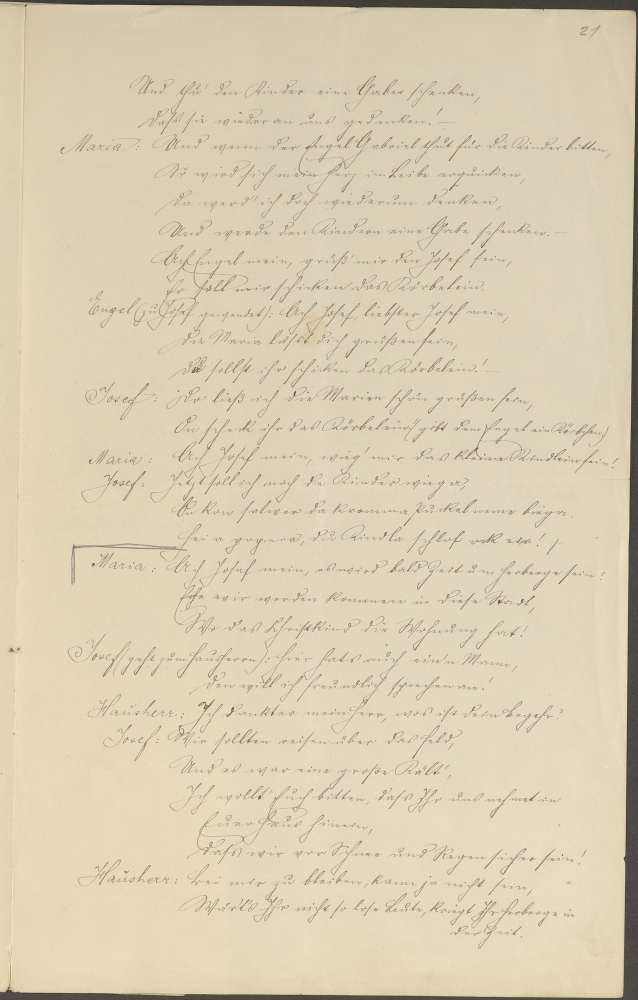 21
Und thu' den Kinder eine Gaber schenken,
Daß sie wieder an uns gedenken! —
Maria: Und wenn der Engel Gabriel thut für die Kinder bitten,
So wird sich mein Herz im Leibe erquicken,
Da werd' ich doch wiederum denken,
Und werde den Kindern eine Gabe schenken. —
Ach Engel mein, grüß' mir den Josef fein,
Er soll mir schicken das Körbelein.
Engel (zu Josef gewendet): Ach Josef, liebster Josef mein,
Die Maria läßt dich grüßen fein,
Du sollst ihr schicken das Körbelein! —
Josef: ich die Marien schön grüßen fein,
On scheck ihr das Körbelein (gibt dem Engel ein Körbchen)
Maria: Ach Josef mein, wieg' mir das kleine Kindlein fein!
Josef: Jetzt soll ich noch de Kinder wiega?
On kon salwer da kromma Puckel nemme biega.
Hei a popeia, du Kindla schlof ock ei!
Maria: Ach Josef mein, es wird bald Zeit um Herberge sein!
Ehe wir werden kommen in diese Stadt,
Wo das Christkind die Wohnung hat!
Josef (geht zum Hausherrn): Hier hat's auch ein'n Mann,
Den will ich freundlich sprechen an!
Hausherr: Ich dank' mein Herr, was ist dein Begehr?
Josef: Wir sollten reisen über das Feld,
Und es war eine große Kält',
Ich wollt' Euch bitten, daß Ihr uns nehmet in
Euer Haus hinein,
Daß wir vor Schnee und Regen sicher sein!
Hausherr: Bei mir zu bleiben, kann ja nicht sein,
Wär't Ihr nicht so lose Leute, kriegt Ihr Herberge in
der Zeit.